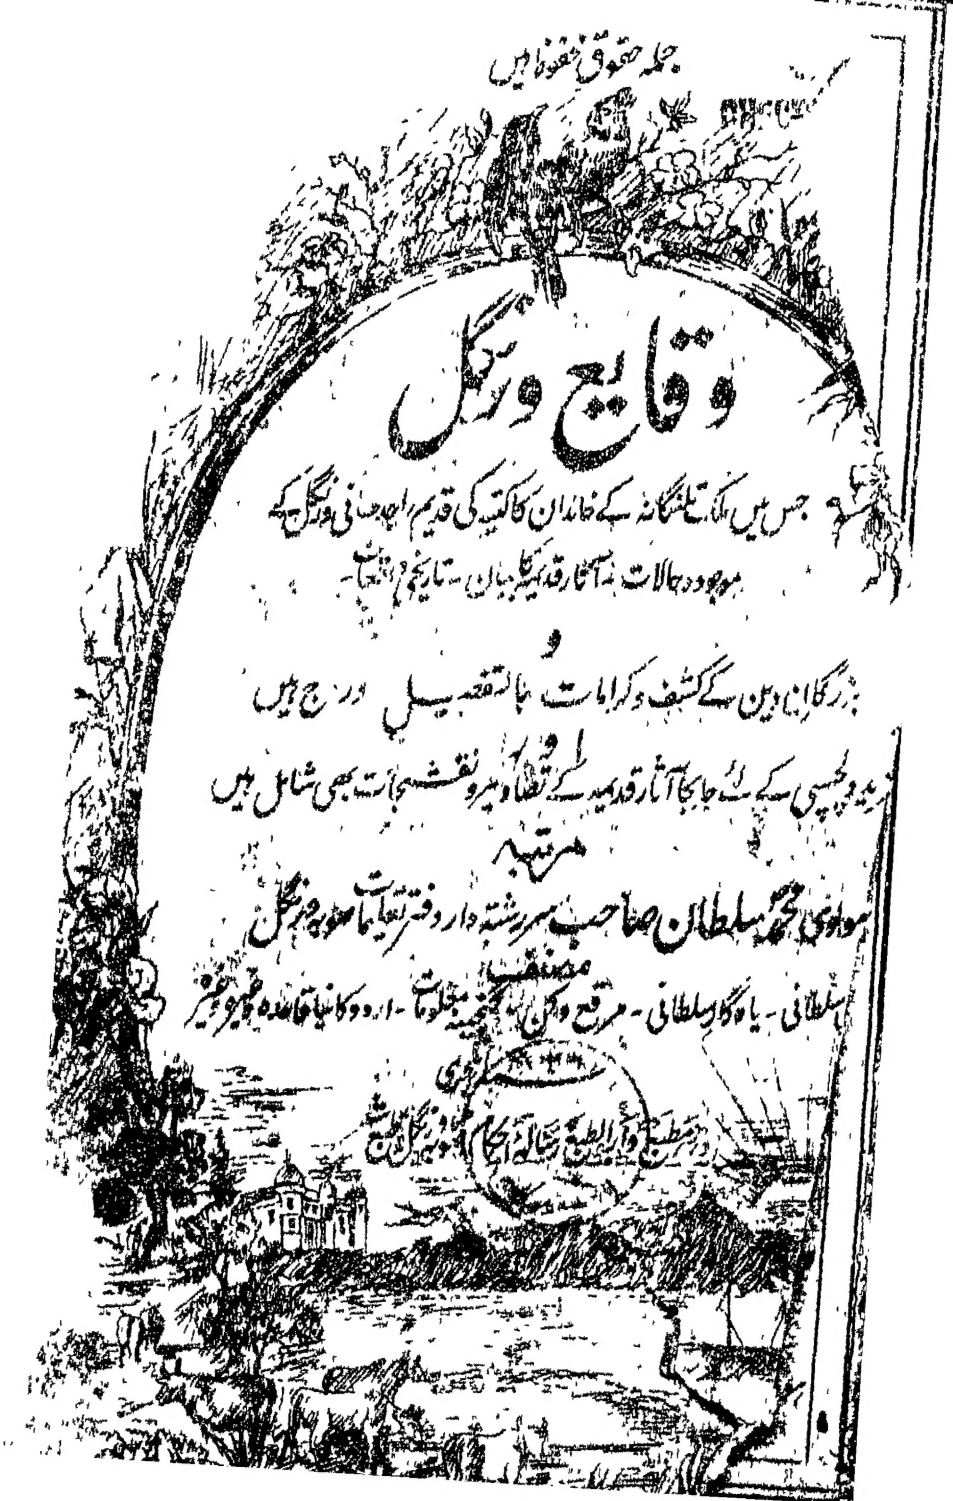 جملہ حقوق محفوظ ہیں
وقایع ورنگل
جس میں تلنگانہ کے خاندان کاکتیہ کی قدیم راجدھانی ورنگل کے
موجودہ حالات آثار قدیمہ کا بیان - تاریخی
و
بزرگان دین کے کشف و کرامات بالتفصیل درج ہیں
اور
مزید دلچسپی کے لئے جابجا آثار قدیمہ کے تصاویر و نقشہ جات بھی شامل ہیں
مرتبہ
مولوی محمد سلطان صاحب سررشتہ دار دفتر تعلیمات صوبہ ورنگل
مصنف
سلطانی - یادگار سلطانی - مرقع دکن - گنجینہ معلومات - اردو کا نیا قاعدہ وغیرہ وغیرہ
مطبع دار الطبع رسالۂ احکام صوبہ ورنگل